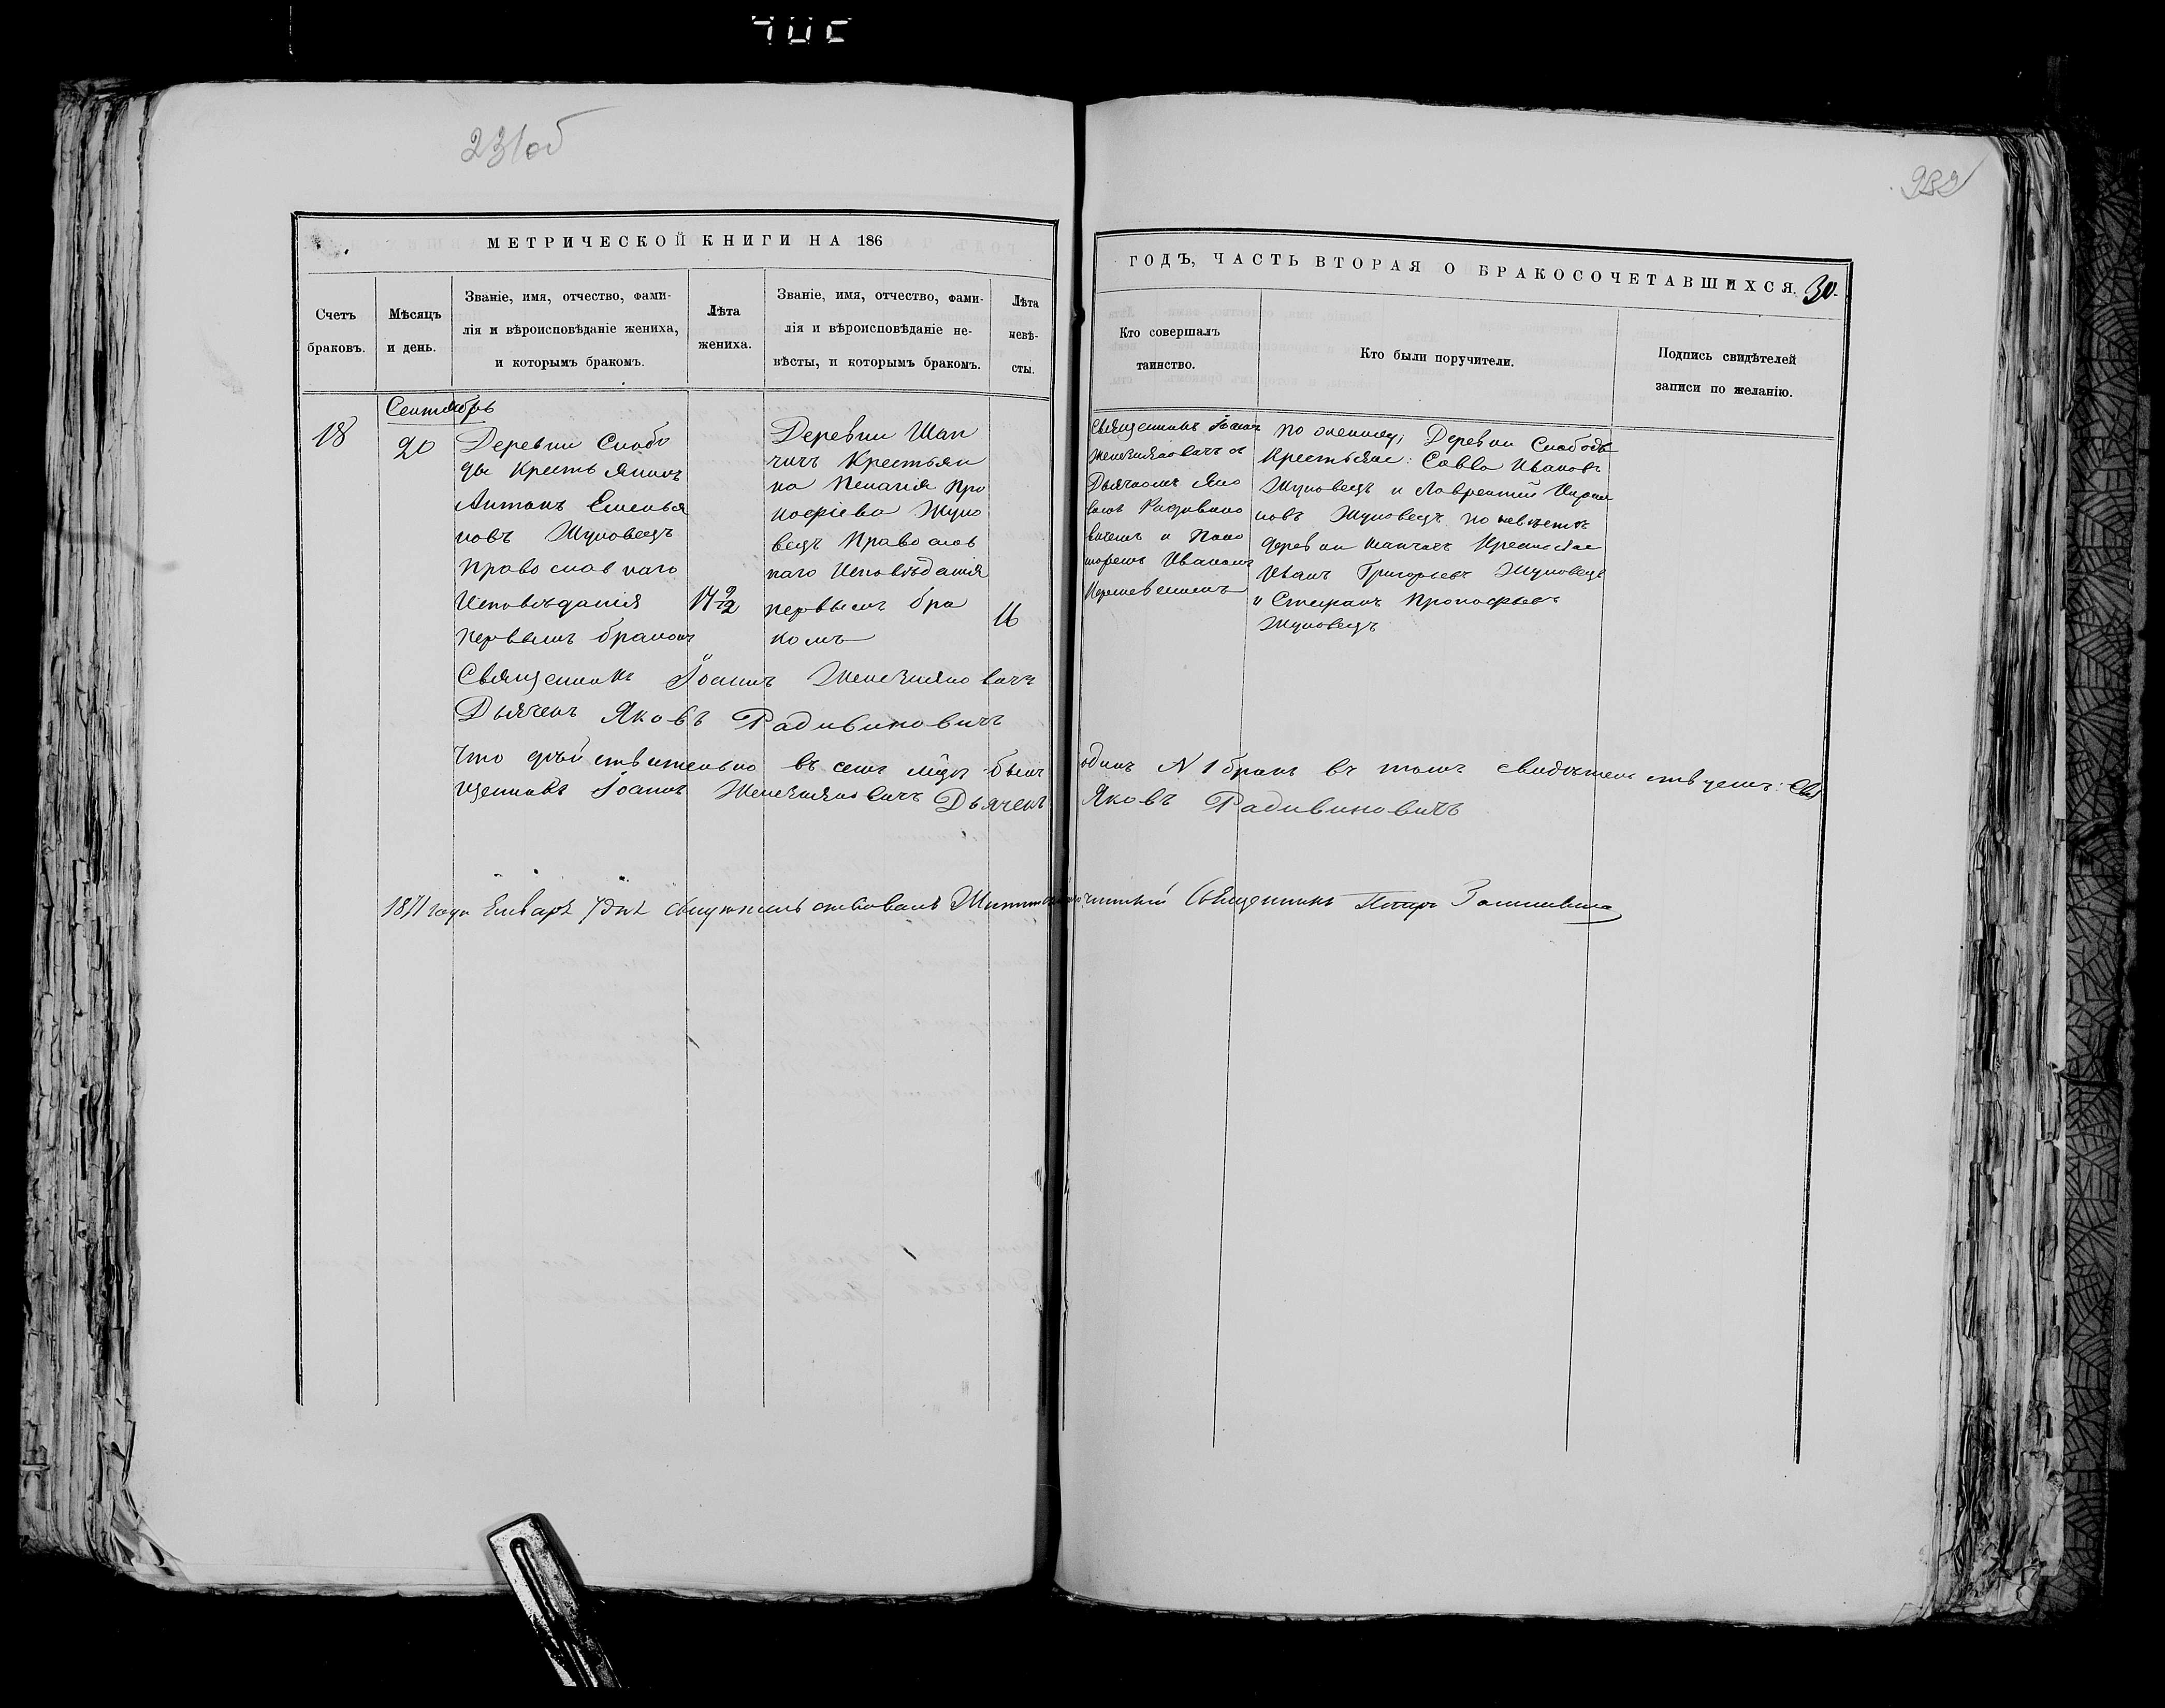 231об
232
МЕТРИЧЕСКОЙ КНИГИ НА 186
ГОДЪ, ЧАСТЬ ВТОРАЯ О БРАКОСОЧЕТАВШИХСЯ. 30.
Счетъ
браковъ.
Мѣсяцъ
и день.
Званіе, имя, отчество, фами-
лія и вѣроисповѣданіе жениха,
и которымъ бракомъ.
Лѣта
жениха.
Званіе, имя, отчество, фами-
лія и вѣроисповѣданіе не-
вѣсты, и которымъ бракомъ.
Лѣта
невѣ-
сты.
Кто совершалъ
таинство.
Кто были поручители.
Подпись свидѣтелей
записи по желанію.
18
Сентябрь
20
Деревни Слабо
ды Крестьянинъ
Антонъ Емелья
новъ Жуковецъ
Православнаго
Исповѣданія
первымъ бракомъ
Деревни Шап
чичъ Крестьян
ка Пелагія Про
кофіева Жуко
вецъ Православ
наго Исповѣданія
первымъ бра
комъ
16
Священникъ Іоаннъ
Дьячкомъ Яко
вомъ Радивино
вичемъ и Поно
моремъ Иваномъ
по женихѣ; Деревни Слабоды
Крестьяне: Савва Ивановъ
Жуковецъ и Лаврентій
Жуковецъ по невѣстѣ
деревни Шапчичъ Крестьяне
Иванъ Григорьевъ Жуковецъ
и Стефанъ Прокофьевъ
Жуковецъ
Священникъ Іоаннъ
Дьячекъ Яковъ Радивиновичъ
Что дѣйствительно въ семъ мѣсяцѣ былъ одинъ N 1 бракъ въ томъ свидѣтельствуемъ: Свя
щенникъ Іоаннъ Дьячекъ Яковъ Радивиновичъ
1871 года Января 7 дня Священникъ Петръ